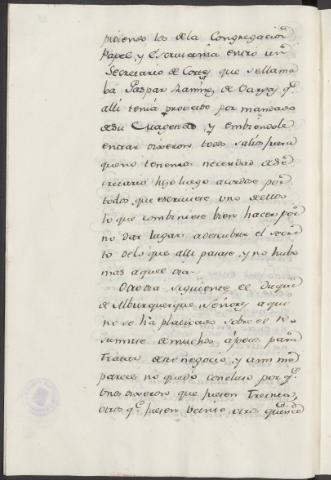 pidiendo los de la Congregación
Papel, y Escrivania entró un
Secretario de Cortes, que se llama
ba Gaspar Ramirez de Vargas q.e
alli tenía proveido por mandado
de Su Magestad, y embiandole
entrar dixeron todos salios fuera
que no tenemos necesidad de Se
cretario hizo luego acordose por
todos, que escriviese uno de ellos
lo que combiniese bien hacer por
no dar lugar a descubrir el secre
to de lo que alli pasase, y no hubo
mas aquel dia.
Otro dia siguiente el Duque
de Alburquerque, Señores aqui
no se ha platicado sobre el re
sumirse de muchos a pocos para
tratar de este negocio, y a mi me
parece no quedó concluso por q.e
unos dixeron que fuesen Treinta,
otros q.e fuesen Veinte, otros quince